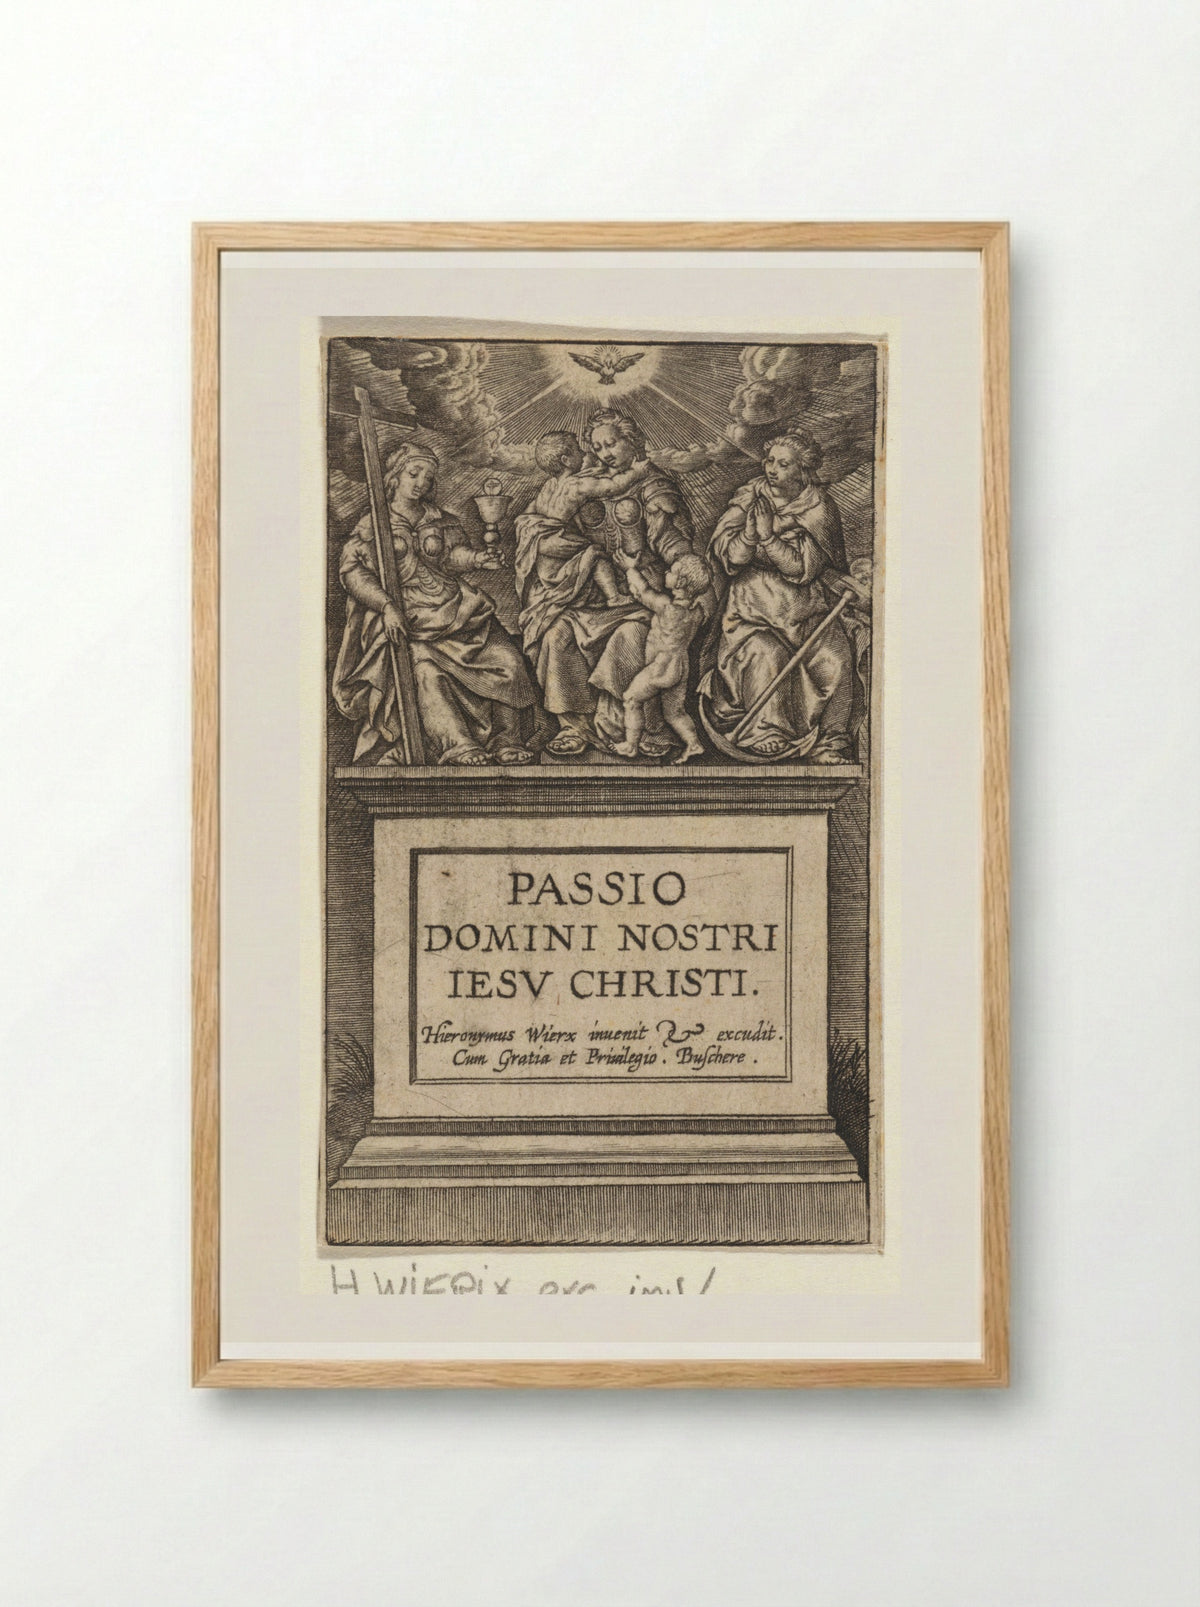 PASSIO
DOMINI NOSTRI
IESV CHRISTI.
Hieronymus Wierx inuenit & excudit.
Cum Gratia et Priuilegio. Buschere.
H WiERix exc. inv/